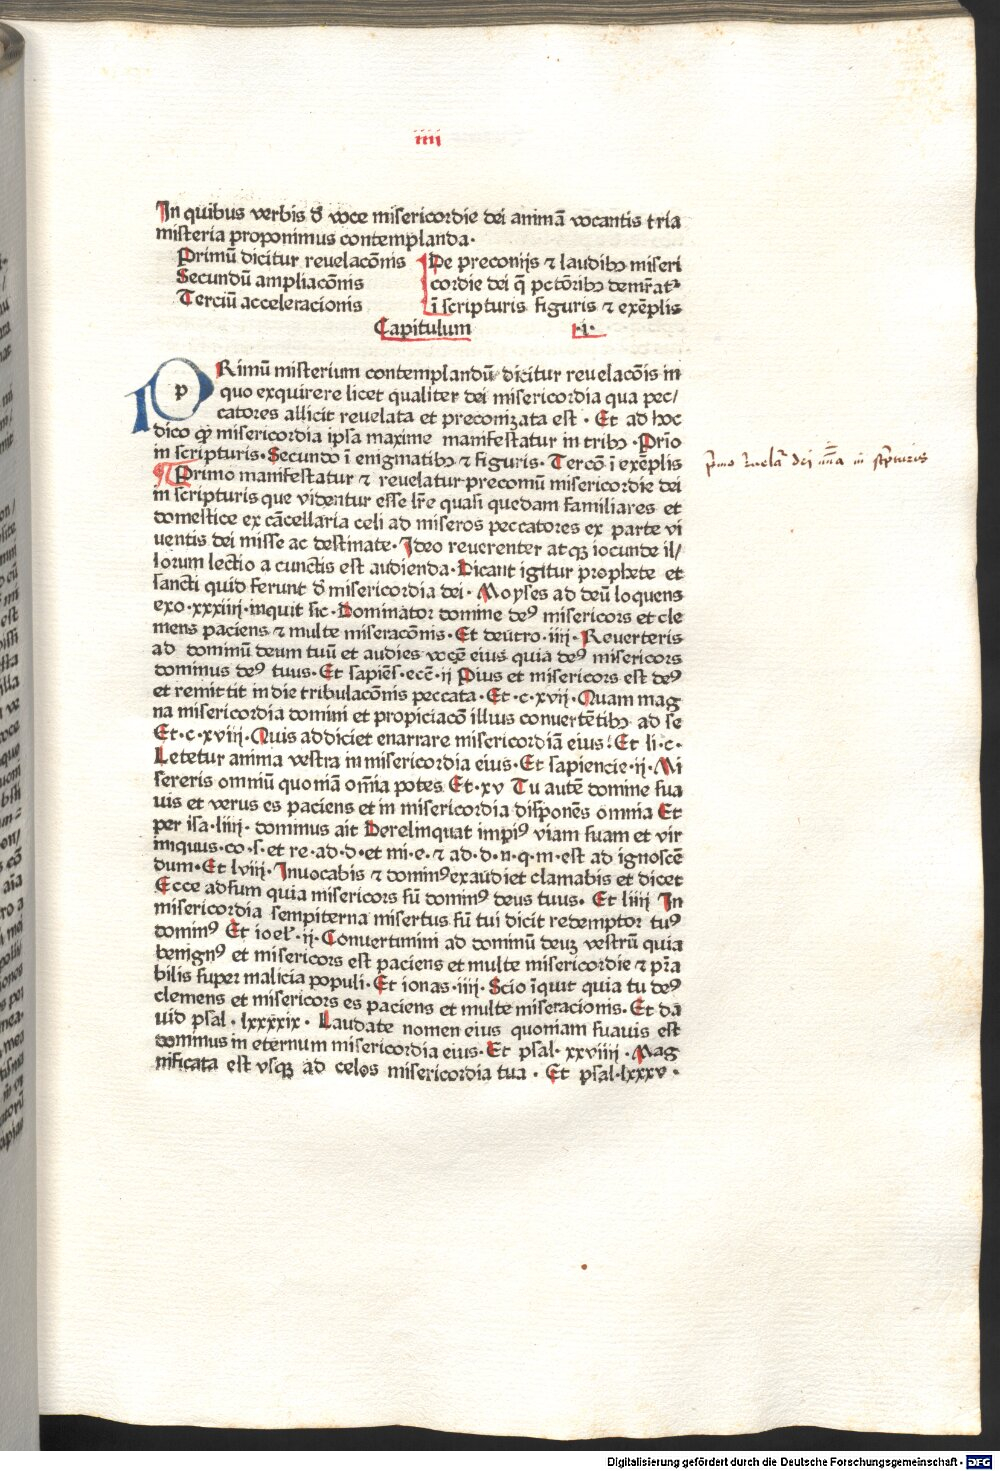 iiii
In quibus verbis đ voce misericordie dei animā vocantis tria
misteria proponimus contemplanda·
Primū dicitur reuelacōnis
Secundū ampliacōnis
Terciū acceleracionis
De preconijs ⁊ laudibꝫ miseri
cordie dei q̄ pctōribꝫ demr̄at᷑
ī scripturis figuris ⁊ exēplis
Capitulum ·i·
PRimū misterium contemplandū dicitur reuelacōis in
quo exquirere licet qualiter dei misericordia qua pec/
catores allicit reuelata et preconizata est · Et ad hoc
dico ꝙ misericordia ipsa maxime manifestatur in tribꝫ ·Prīo
in scripturis· Secundo ī enigmatibꝫ ⁊ figuris· Tercō ī exēplis
¶ Primo manifestatur ⁊ reuelatur preconiū misericordie dei
in scripturis que videntur esse lr̄e quasi quedam familiares et
domestice ex cācellaria celi ad miseros peccatores ex parte vi
uentis dei misse ac destinate· Ideo reuerenter atqꝫ iocunde il/
lorum lectio a cunctis est audienda· Dicant igitur prophete et
sancti quid ferunt đ misericordia dei · Moyses ad deū loquens
exo·xxxiiij·inquit sic· Dominator domine deꝰ misericors et cle
mens paciens ⁊ multe miseracōnis· Et deutro·iiij· Reuerteris
ad dominū deum tuū et audies vocē eius quia deꝰ misericors
dominus deꝰ tuus· Et sapiēs̄·ecc̄·ij Pius et misericors est deꝰ
et remittit in die tribulacōnis peccata· Et·c·xvij· Quam mag
na misericordia domini et propiciacō illius conuertētibꝫ ad se
Et·c·xviij· Quis addiciet enarrare misericordiā eius: Et li·c·
Letetur anima vestra in misericordia eius· Et sapiencie·ij· Mi
sereris omniū quoniā om̄ia potes Et·xv Tu autē domine sua
uis et verus es paciens et in misericordia disponēs omnia Et
per isa·liiij· dominus ait Derelinquat impiꝰ viam suam et vir
iniquus·co·s·et re·ad·d·et mi·e·⁊ ad·d·n·q·m·est ad ignoscē
dum· Et lviij· Inuocabis ⁊ dominꝰ exaudiet clamabis et dicet
Ecce adsum quia misericors sū dominꝰ deus tuus· Et liiij In
misericordia sempiterna misertus sū tui dicit redemptor tuꝰ
dominꝰ Et ioel·ij· Conuertimini ad dominū deuꝫ vestrū quia
benignꝰ et misericors est paciens et multe misericordie ⁊ pr̄a
bilis super malicia populi· Et ionas·iiij· Scio īquit quia tu deꝰ
clemens et misericors es paciens et multe miseracionis· Et dā
uid psal·lxxxxix· Laudate nomen eius quoniam suauis est
dominus in eternum misericordia eius· Et psal·xxviiij· Mag
nificata est vsqꝫ ad celos misericordia tua · Et psal·lxxxv·
dei mīa in scripturis
Digitalisierung gefördert durch die Deutsche Forschungsgemeinschaft · DFG